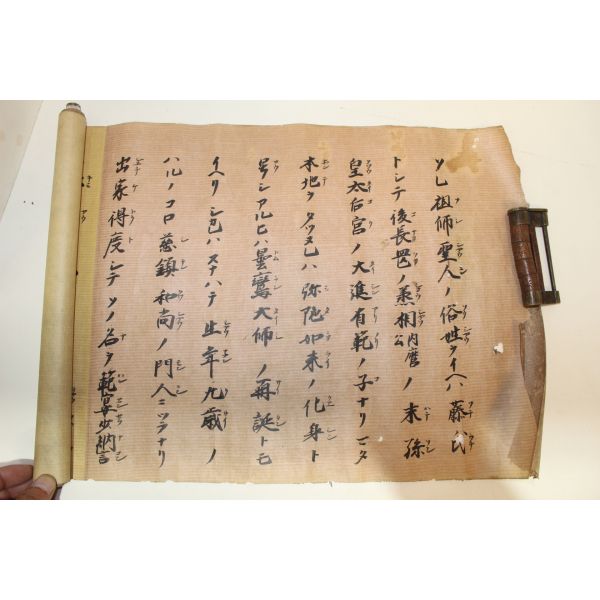 ソレ祖師聖人ノ俗姓ヲイヘハ藤氏
トシテ後長岡ノ丞相内麿公ノ末孫
皇太后宮ノ大進有範ノ子ナリマタ
本地ヲタツヌレハ弥陀如来ノ化身ト
号シアルヒハ曇鸞大師ノ再誕トモ
イヘリシカレハスナハチ生年九歳ノ
ハルノコロ慈鎮和尚ノ門人ニツラナリ
出家得度シテソノ名ヲ範宴少納言